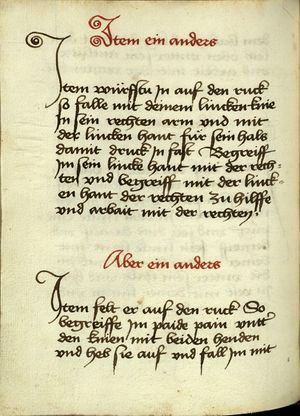 Item ein anders
Item würffstu in auf den ruck
so falle mit deinem lincken knie
in sein rechten arm und mit
der lincken hant für sein hals
damit druck in fast Begreiff
im sein lincke hant mit der rech-
ten und begreiff mit der linck-
en hant der rechten zu hilffe
und arbait mit der rechten
Aber ein anders
Item felt er auf den ruck So
begreiffe im paide pain untter
den knien mit beiden henden
und heb sie auf und fall im mit